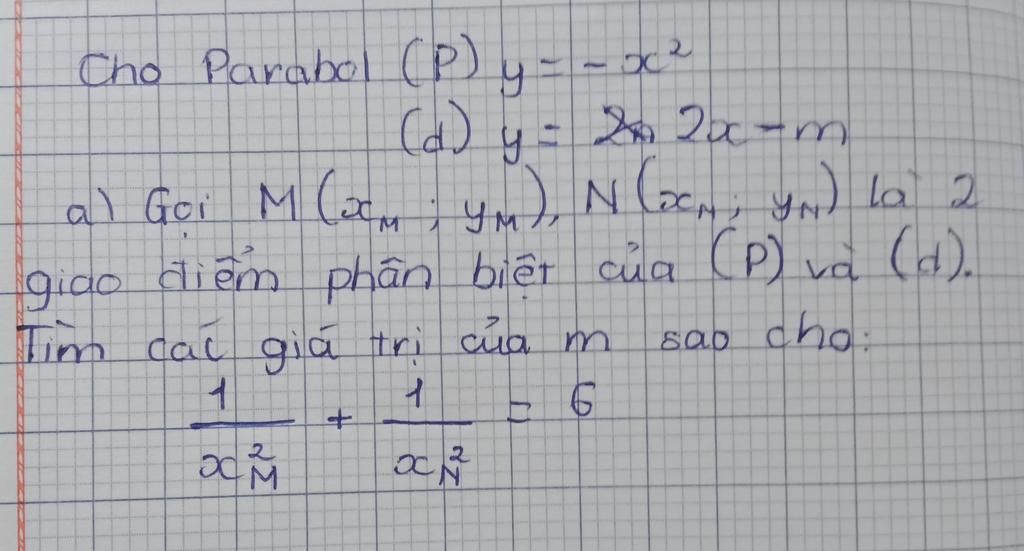 Cho Parabol (P) y = -x²
(d) y = 2x - m
a) Gọi M(x_M ; y_M), N(x_N ; y_N) là 2
giao điểm phân biệt của (P) và (d).
Tìm các giá trị của m sao cho:
1/x_M² + 1/x_N² = 6